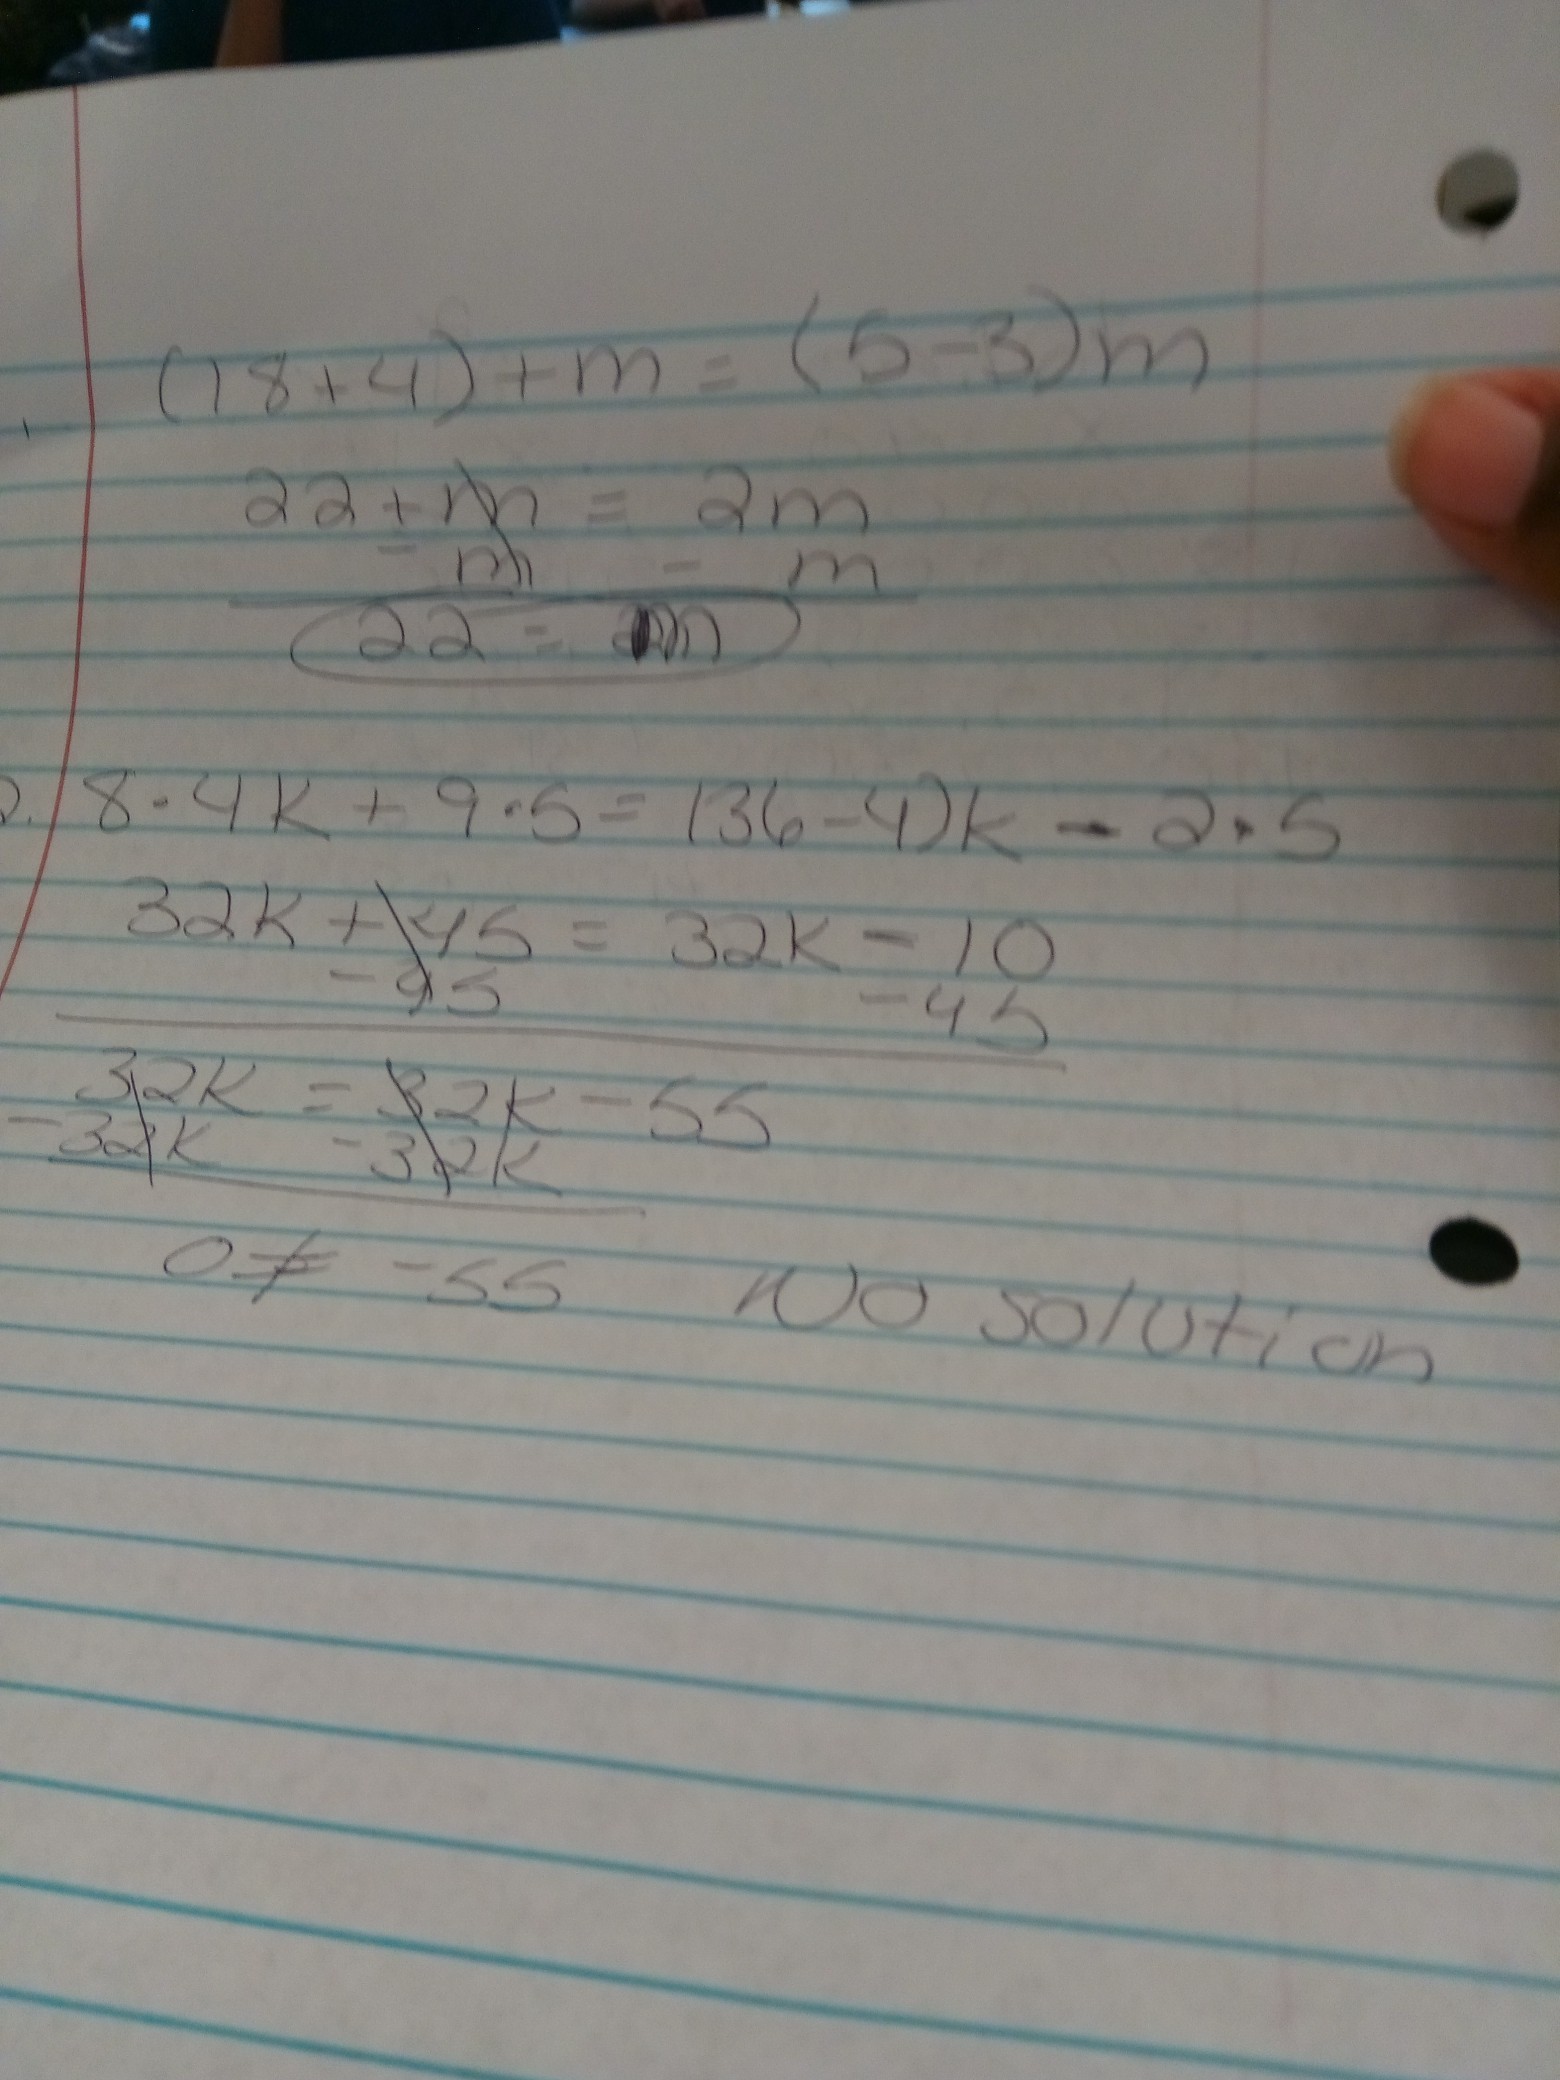 (18+4)+m = (5-3)m
22+m = 2m
- m - m
22 = m
2. 8·4k + 9·5 = (36-4)k - 2·5
32k + 45 = 32k - 10
-45 -45
32k = 32k - 55
-32k -32k
0 ≠ -55 No solution